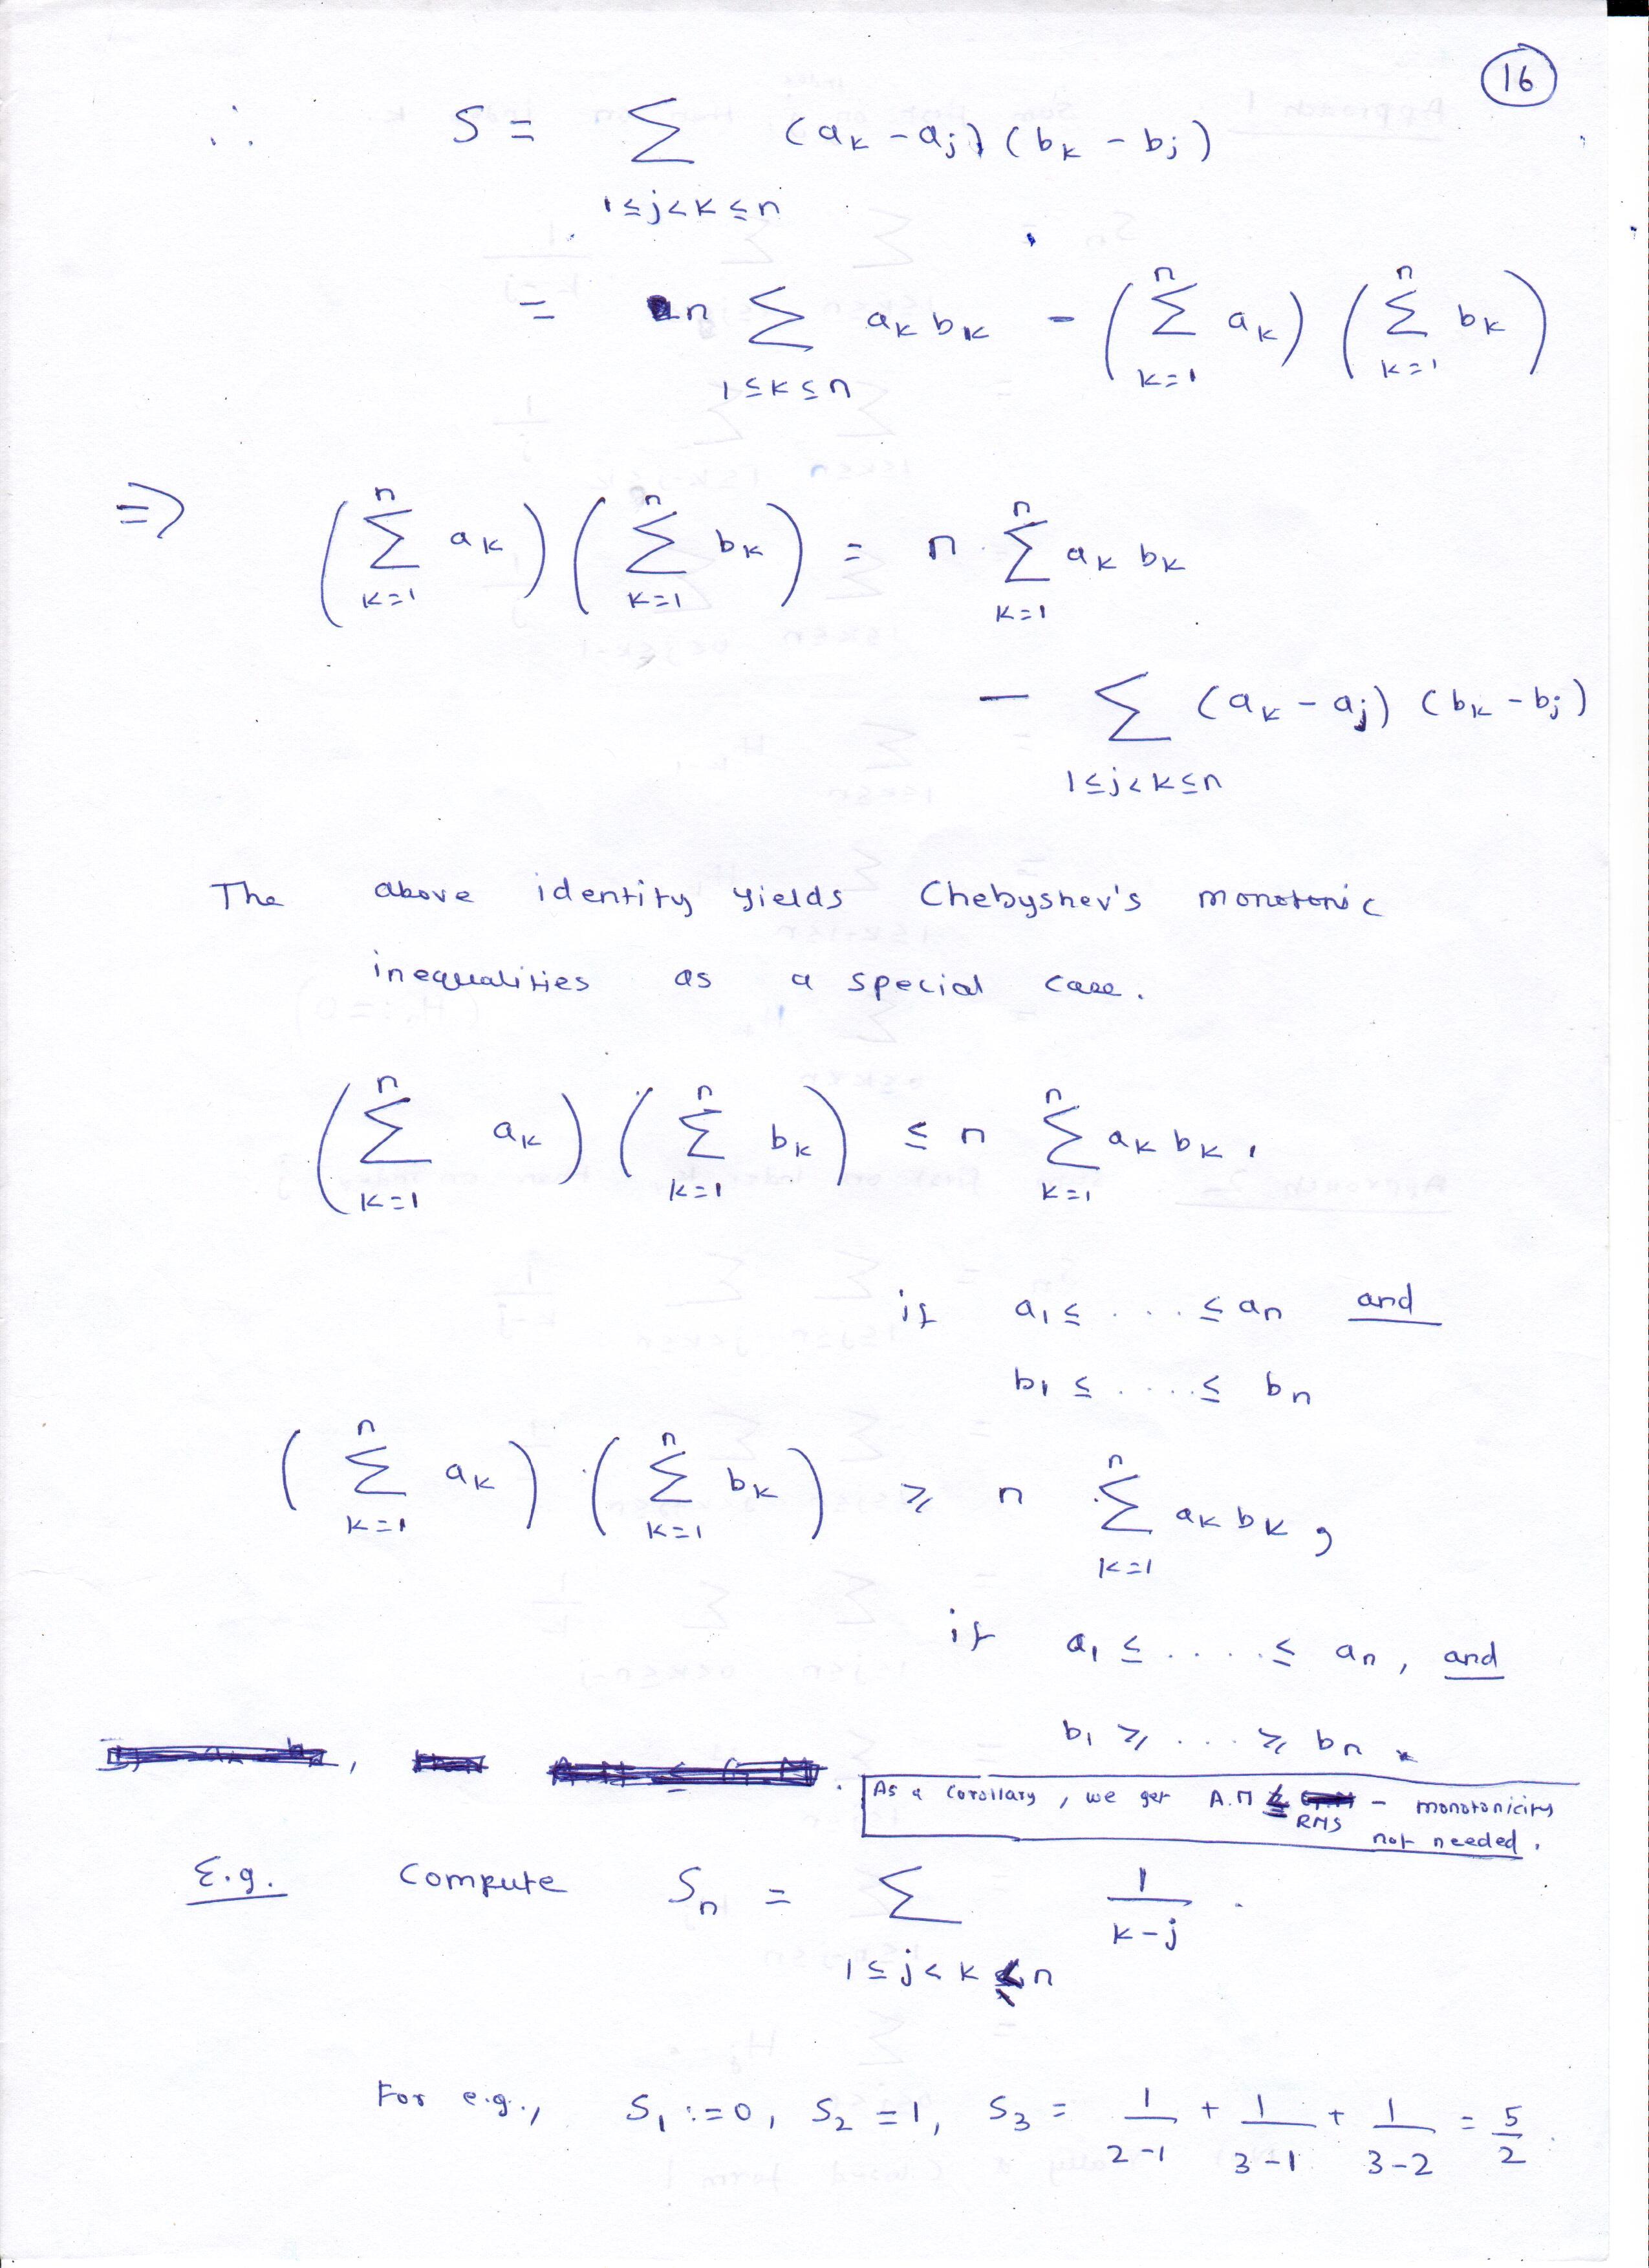 16
∴ S = ∑_{1≤j<k≤n} (a_k - a_j) (b_k - b_j)
= n ∑_{1≤k≤n} a_k b_k - (∑_{k=1}^{n} a_k) (∑_{k=1}^{n} b_k)
⇒ (∑_{k=1}^{n} a_k) (∑_{k=1}^{n} b_k) = n ∑_{k=1}^{n} a_k b_k
- ∑_{1≤j<k≤n} (a_k - a_j) (b_k - b_j)
The above identity yields Chebyshev's monotonic
inequalities as a special case.
(∑_{k=1}^{n} a_k) (∑_{k=1}^{n} b_k) ≤ n ∑_{k=1}^{n} a_k b_k,
if a_1 ≤ .... ≤ a_n and
b_1 ≤ ..... ≤ b_n
(∑_{k=1}^{n} a_k) (∑_{k=1}^{n} b_k) ≥ n ∑_{k=1}^{n} a_k b_k,
if a_1 ≤ ..... ≤ a_n, and
b_1 ≥ .... ≥ b_n.
As a corollary, we get A.M ≤ RMS - monotonicity
not needed.
E.g. Compute S_n = ∑_{1≤j<k≤n} 1/(k-j).
For e.g., S_1 := 0, S_2 = 1, S_3 = 1/(2-1) + 1/(3-1) + 1/(3-2) = 5/2.